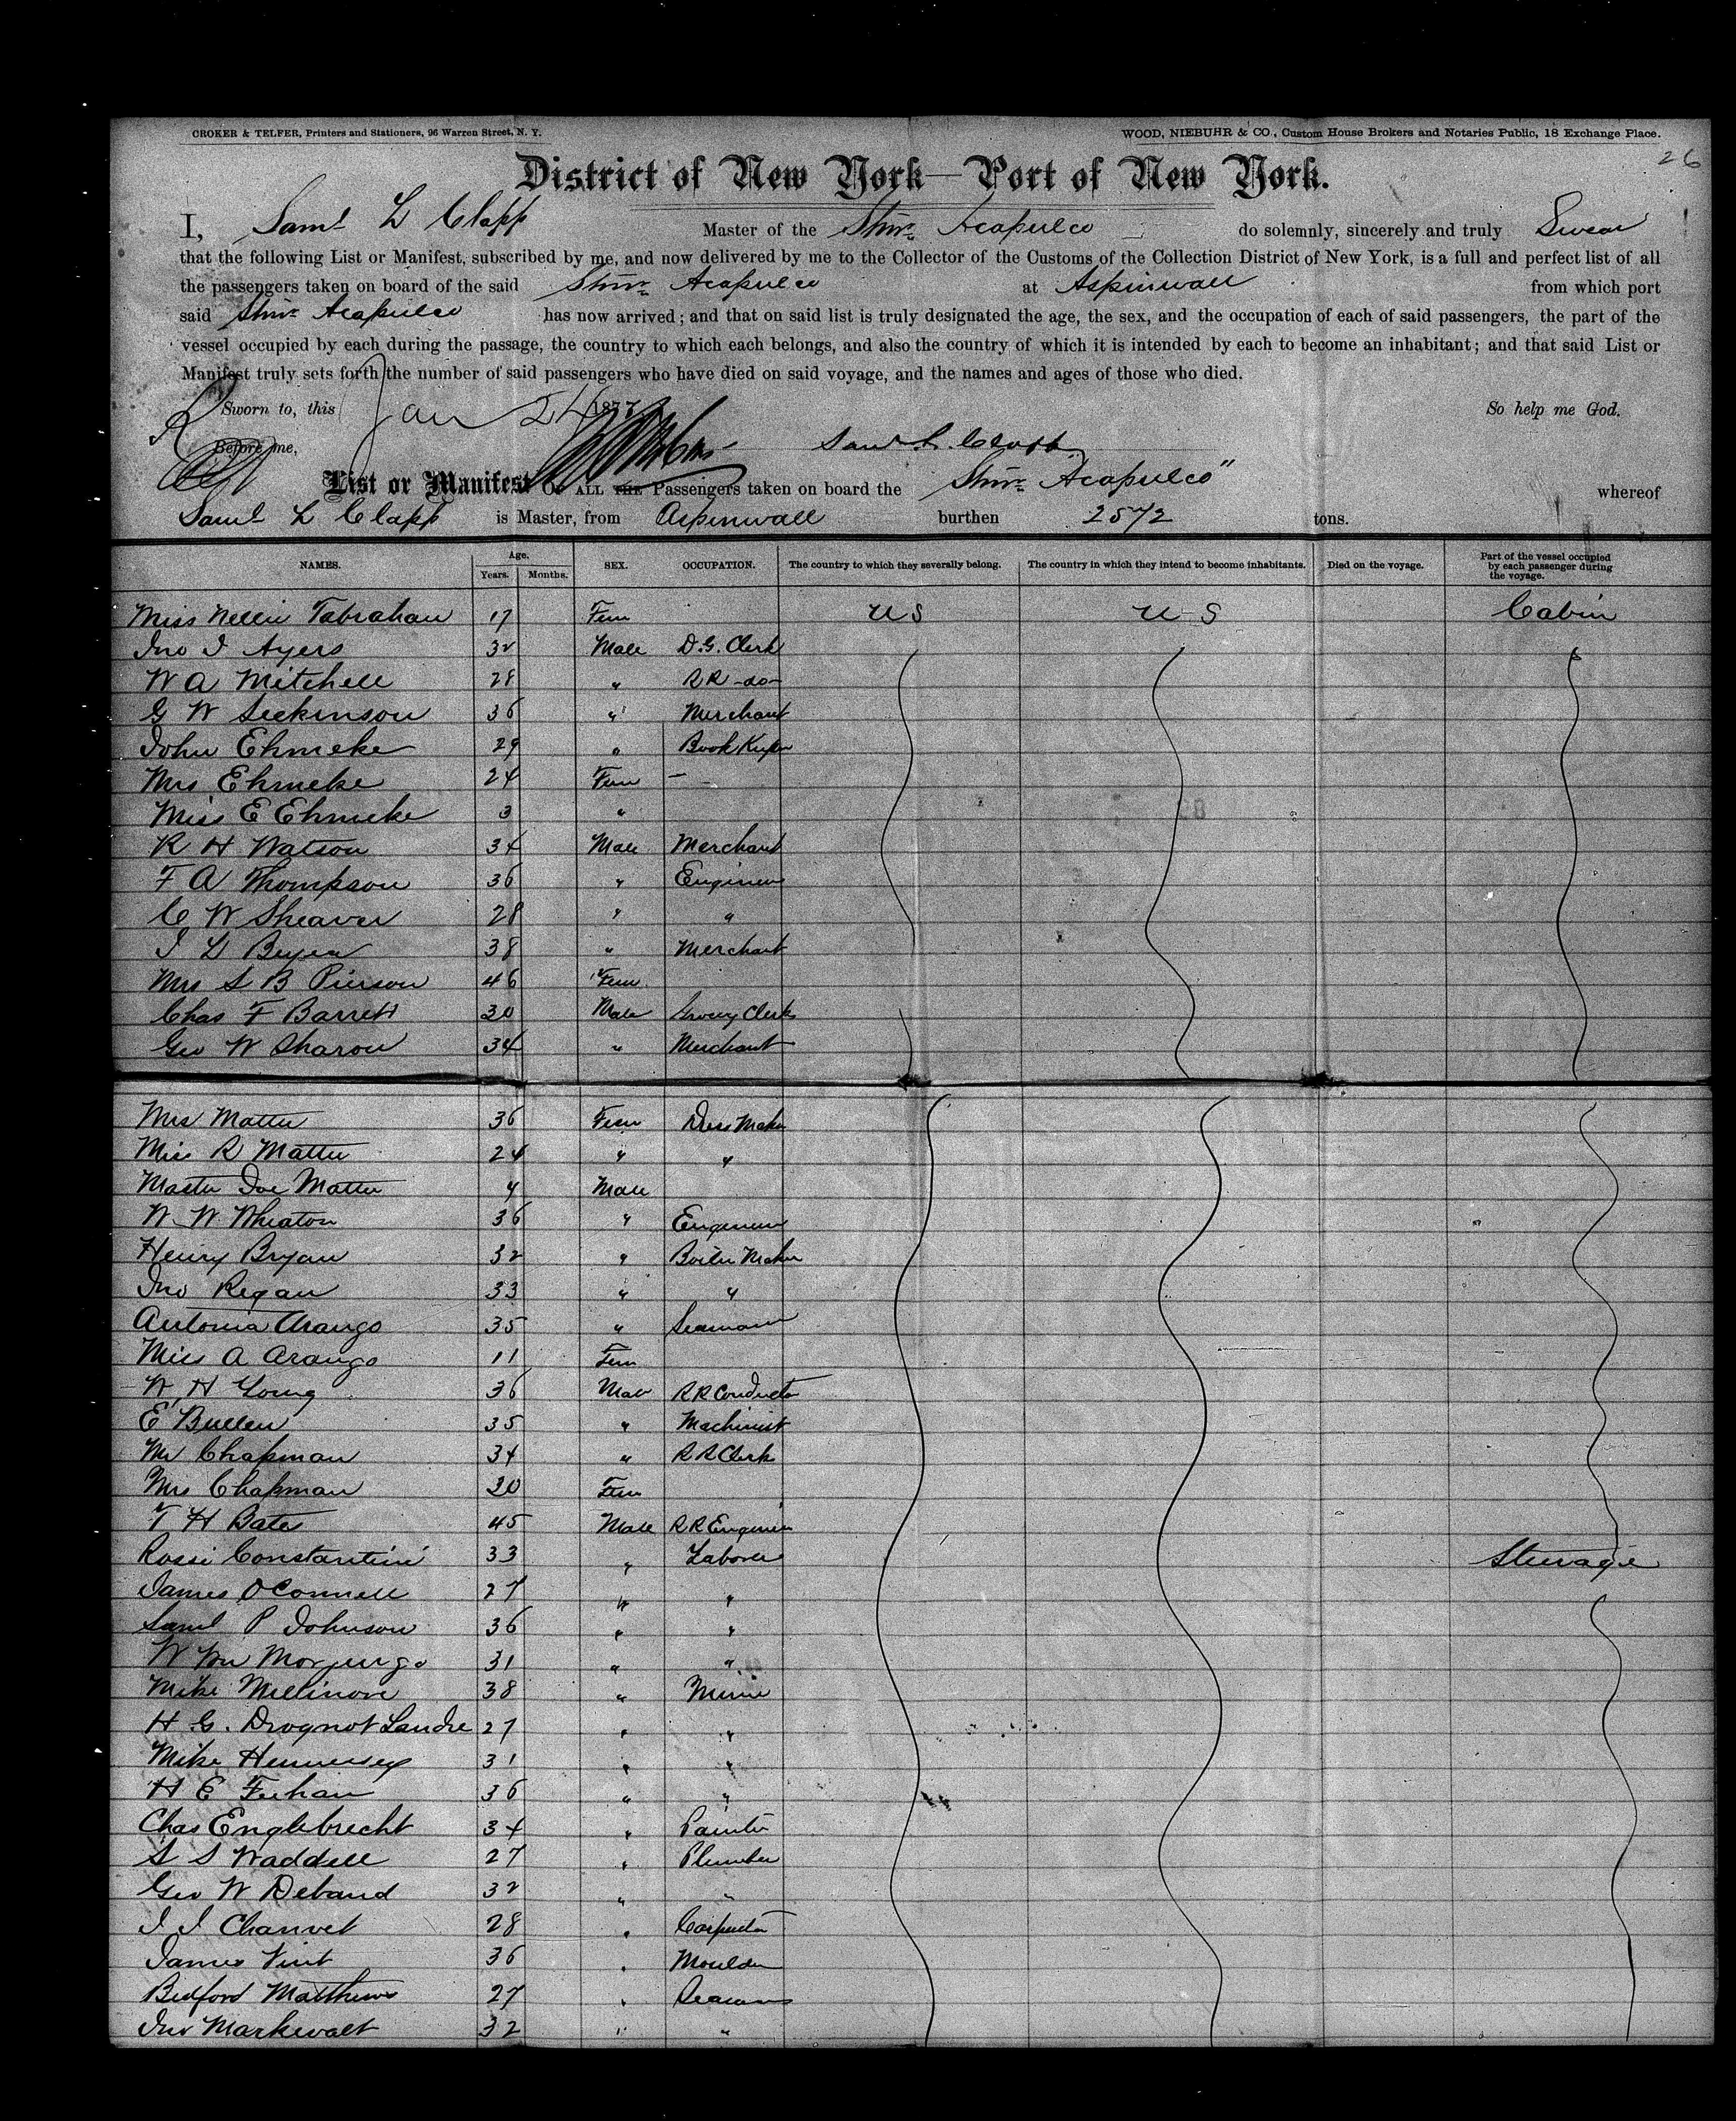 CROKER & TELFER, Printers and Stationers, 96 Warren Street, N. Y. WOOD, NIEBUHR & CO., Custom House Brokers and Notaries Public, 18 Exchange Place.
26
District of New York—Port of New York.
I, Saml L Clapp Master of the Stmr Acapulco do solemnly, sincerely and truly Swear
that the following List or Manifest, subscribed by me, and now delivered by me to the Collector of the Customs of the Collection District of New York, is a full and perfect list of all
the passengers taken on board of the said Stmr Acapulco at Aspinwall from which port
said Stmr Acapulco has now arrived; and that on said list is truly designated the age, the sex, and the occupation of each of said passengers, the part of the
vessel occupied by each during the passage, the country to which each belongs, and also the country of which it is intended by each to become an inhabitant; and that said List or
Manifest truly sets forth the number of said passengers who have died on said voyage, and the names and ages of those who died.
Sworn to, this Jan 24 1877 So help me God.
Before me, Saml L. Clapp
List or Manifest OF ALL THE Passengers taken on board the Stmr Acapulco" whereof
Saml L Clapp is Master, from Aspinwall burthen 2572 tons.
NAMES. Age. Years. Months. SEX. OCCUPATION. The country to which they severally belong. The country in which they intend to become inhabitants. Died on the voyage. Part of the vessel occupied by each passenger during the voyage.
Miss Nellie Tabrahan 17 Fem U S U S Cabin
Jno J Ayers 32 Male D.G. Clerk
W A Mitchell 28 " RR -do-
G W Seekinson 36 " Merchant
John Ehmeke 29 " Book Keeper
Mrs Ehmeke 24 Fem —
Miss E Ehmeke 3 "
R H Watson 34 Male Merchant
F A Thompson 36 " Engineer
C W Sheaver 28 " "
J L 38 " Merchant
Mrs S B Pierson 46 Fem
Chas F Barrett 30 Male Grocery Clerk
Geo W Sharon 34 " Merchant
Mrs Matter 36 Fem Dress Maker
Miss R Matter 24 " "
Master Joe Matter 4 Male
W W Wheaton 36 " Engineer
Henry Bryan 32 " Boiler Maker
Jno Regan 33 " "
Antonia Arango 35 " Seaman
Miss A Arango 11 Fem
W H Young 36 Male RR Conductor
E Bullen 35 " Machinist
Mr Chapman 34 " RR Clerk
Mrs Chapman 30 Fem
T H Bates 45 Male RR Engineer
Rossi Constantini 33 " Laborer Steerage
James O'Connell 27 " "
Saml P Johnson 36 " "
W Wm 31 " "
Mike Mellinore 38 " Miner
H G. Drognot Landre 27 " "
Mike Hennessey 31 " "
H E Feehan 36 " "
Chas Englebrecht 34 " Painter
S S Waddell 27 " Plumber
Geo W Deband 32 " "
J J Chauvet 28 " Carpenter
James Vint 36 " Moulder
Bedford Matthews 27 " Seaman
Jno Markwalt 32 " "